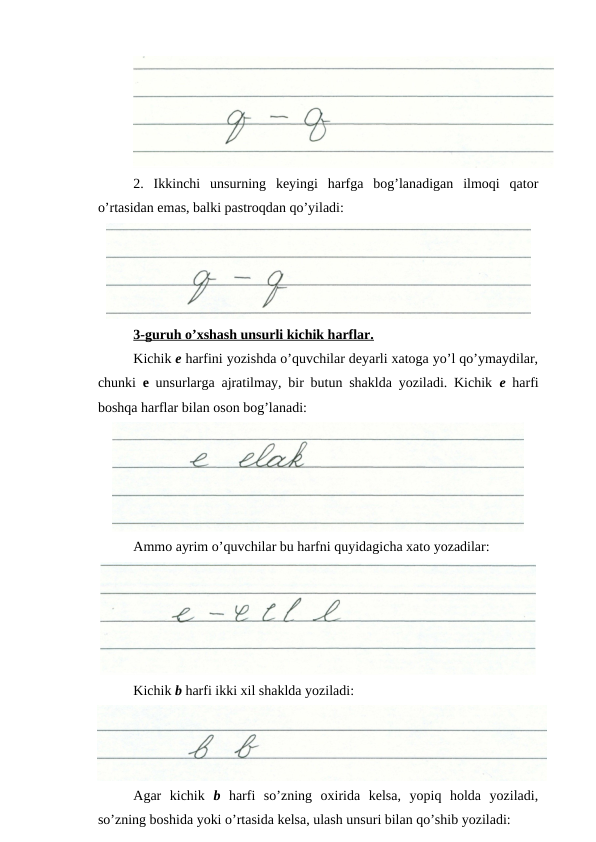 q – q
2. Ikkinchi unsurning keyingi harfga bog’lanadigan ilmoqi qator
o’rtasidan emas, balki pastroqdan qo’yiladi:
q – q
3-guruh o’xshash unsurli kichik harflar.
Kichik e harfini yozishda o’quvchilar deyarli xatoga yo’l qo’ymaydilar,
chunki e unsurlarga ajratilmay, bir butun shaklda yoziladi. Kichik e harfi
boshqa harflar bilan oson bog’lanadi:
e elak
Ammo ayrim o’quvchilar bu harfni quyidagicha xato yozadilar:
Kichik b harfi ikki xil shaklda yoziladi:
b b
Agar kichik b harfi so’zning oxirida kelsa, yopiq holda yoziladi,
so’zning boshida yoki o’rtasida kelsa, ulash unsuri bilan qo’shib yoziladi: